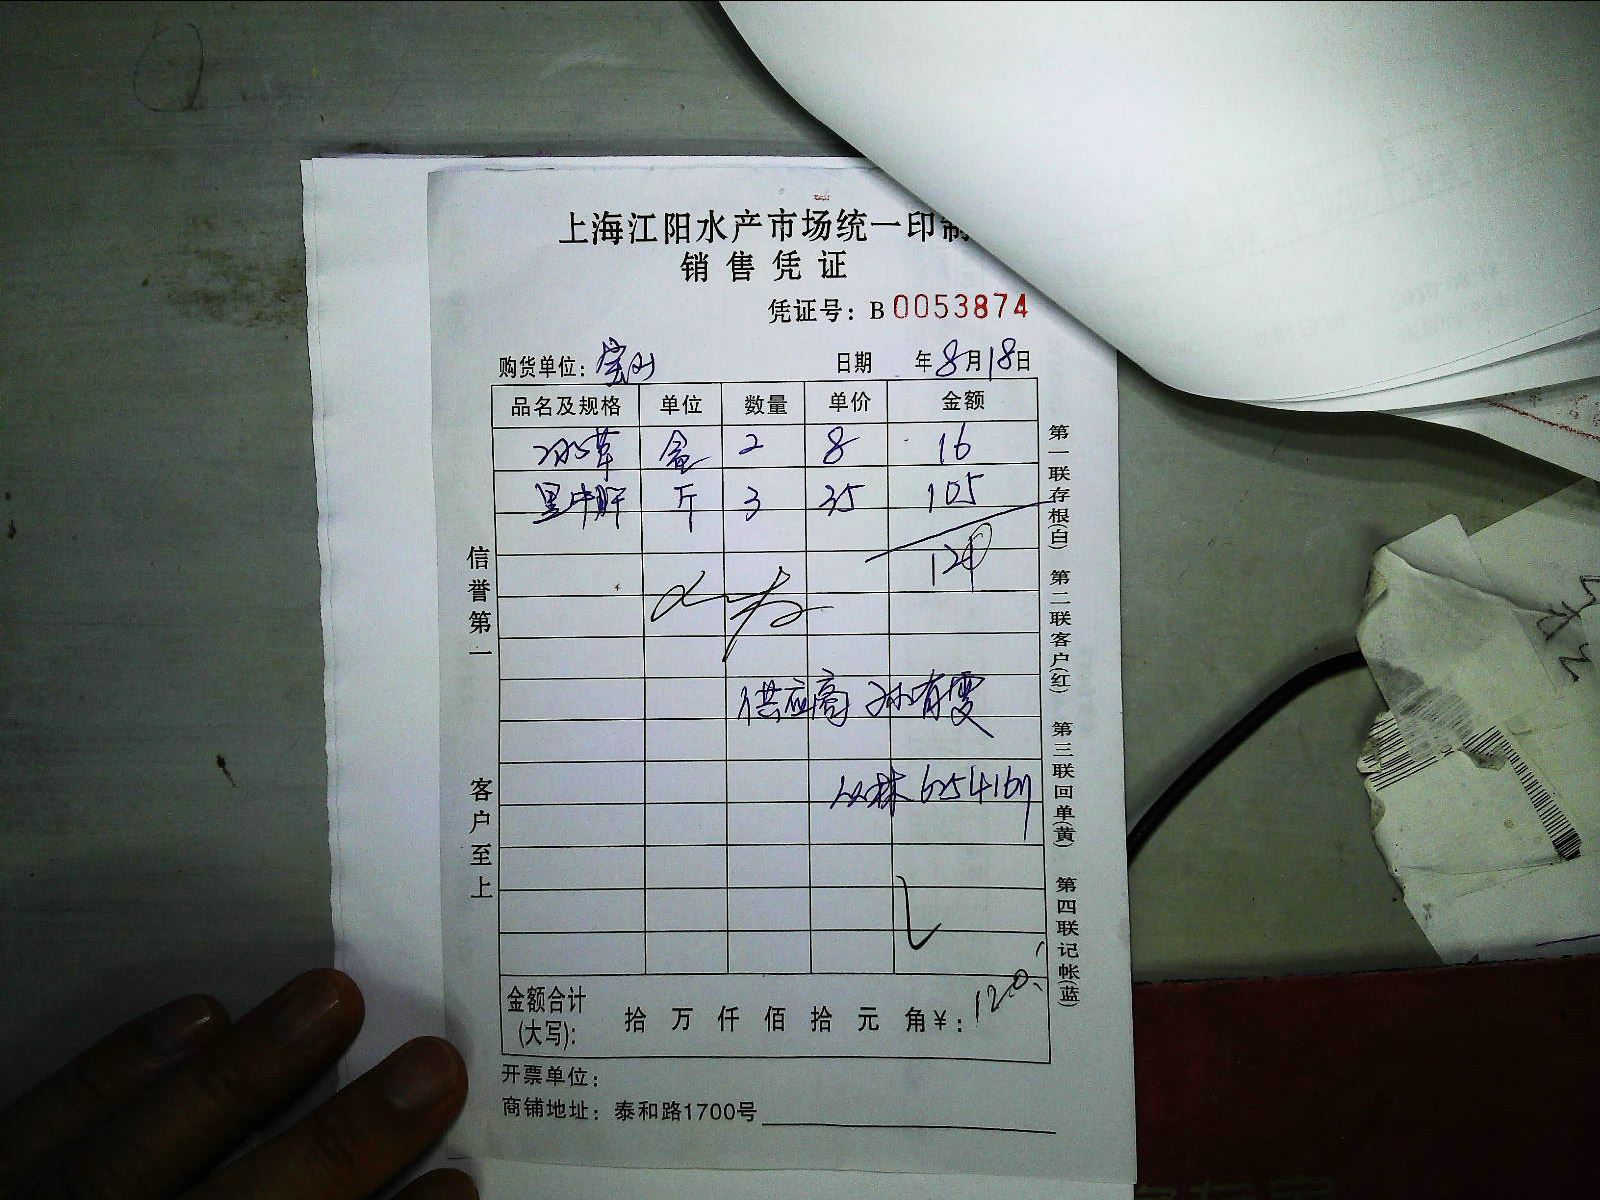 上海江阳水产市场统一印制
销售凭证
凭证号：B 0053874
购货单位：宝山 日期 年8月18日
品名及规格 单位 数量 单价 金额
冰草 盒 2 8 16
黑牛肝 斤 3 35 105
供应商 孙有雯
丛林
120.
金额合计(大写)： 拾 万 仟 佰 拾 元 角 ¥：
开票单位：
商铺地址：泰和路1700号
信誉第一
客户至上
第一联存根(白) 第二联客户(红) 第三联回单(黄) 第四联记帐(蓝)